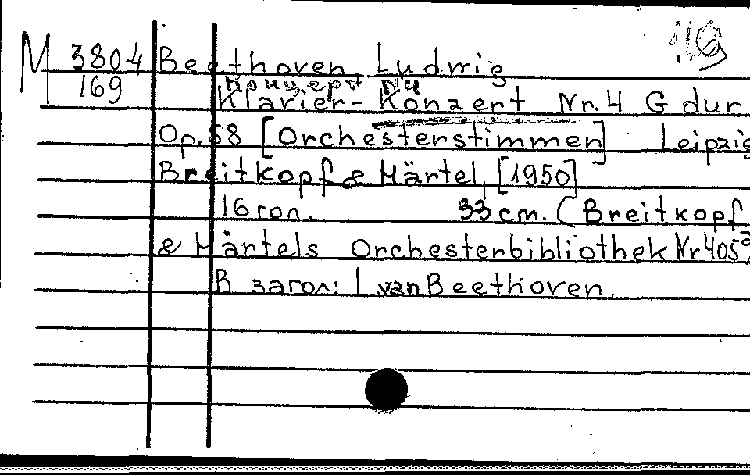 M 3804 Beethoven Ludwig
169 Концерт
Klavier-Konzert Nr.4 G dur
Op.58 [Orchesterstimmen] Leipzig
Breitkopf & Härtel, [1950]
16 гол. 33 cm. (Breitkopf
& Härtels Orchesterbibliothek Nr 405
В загол: L van Beethoven